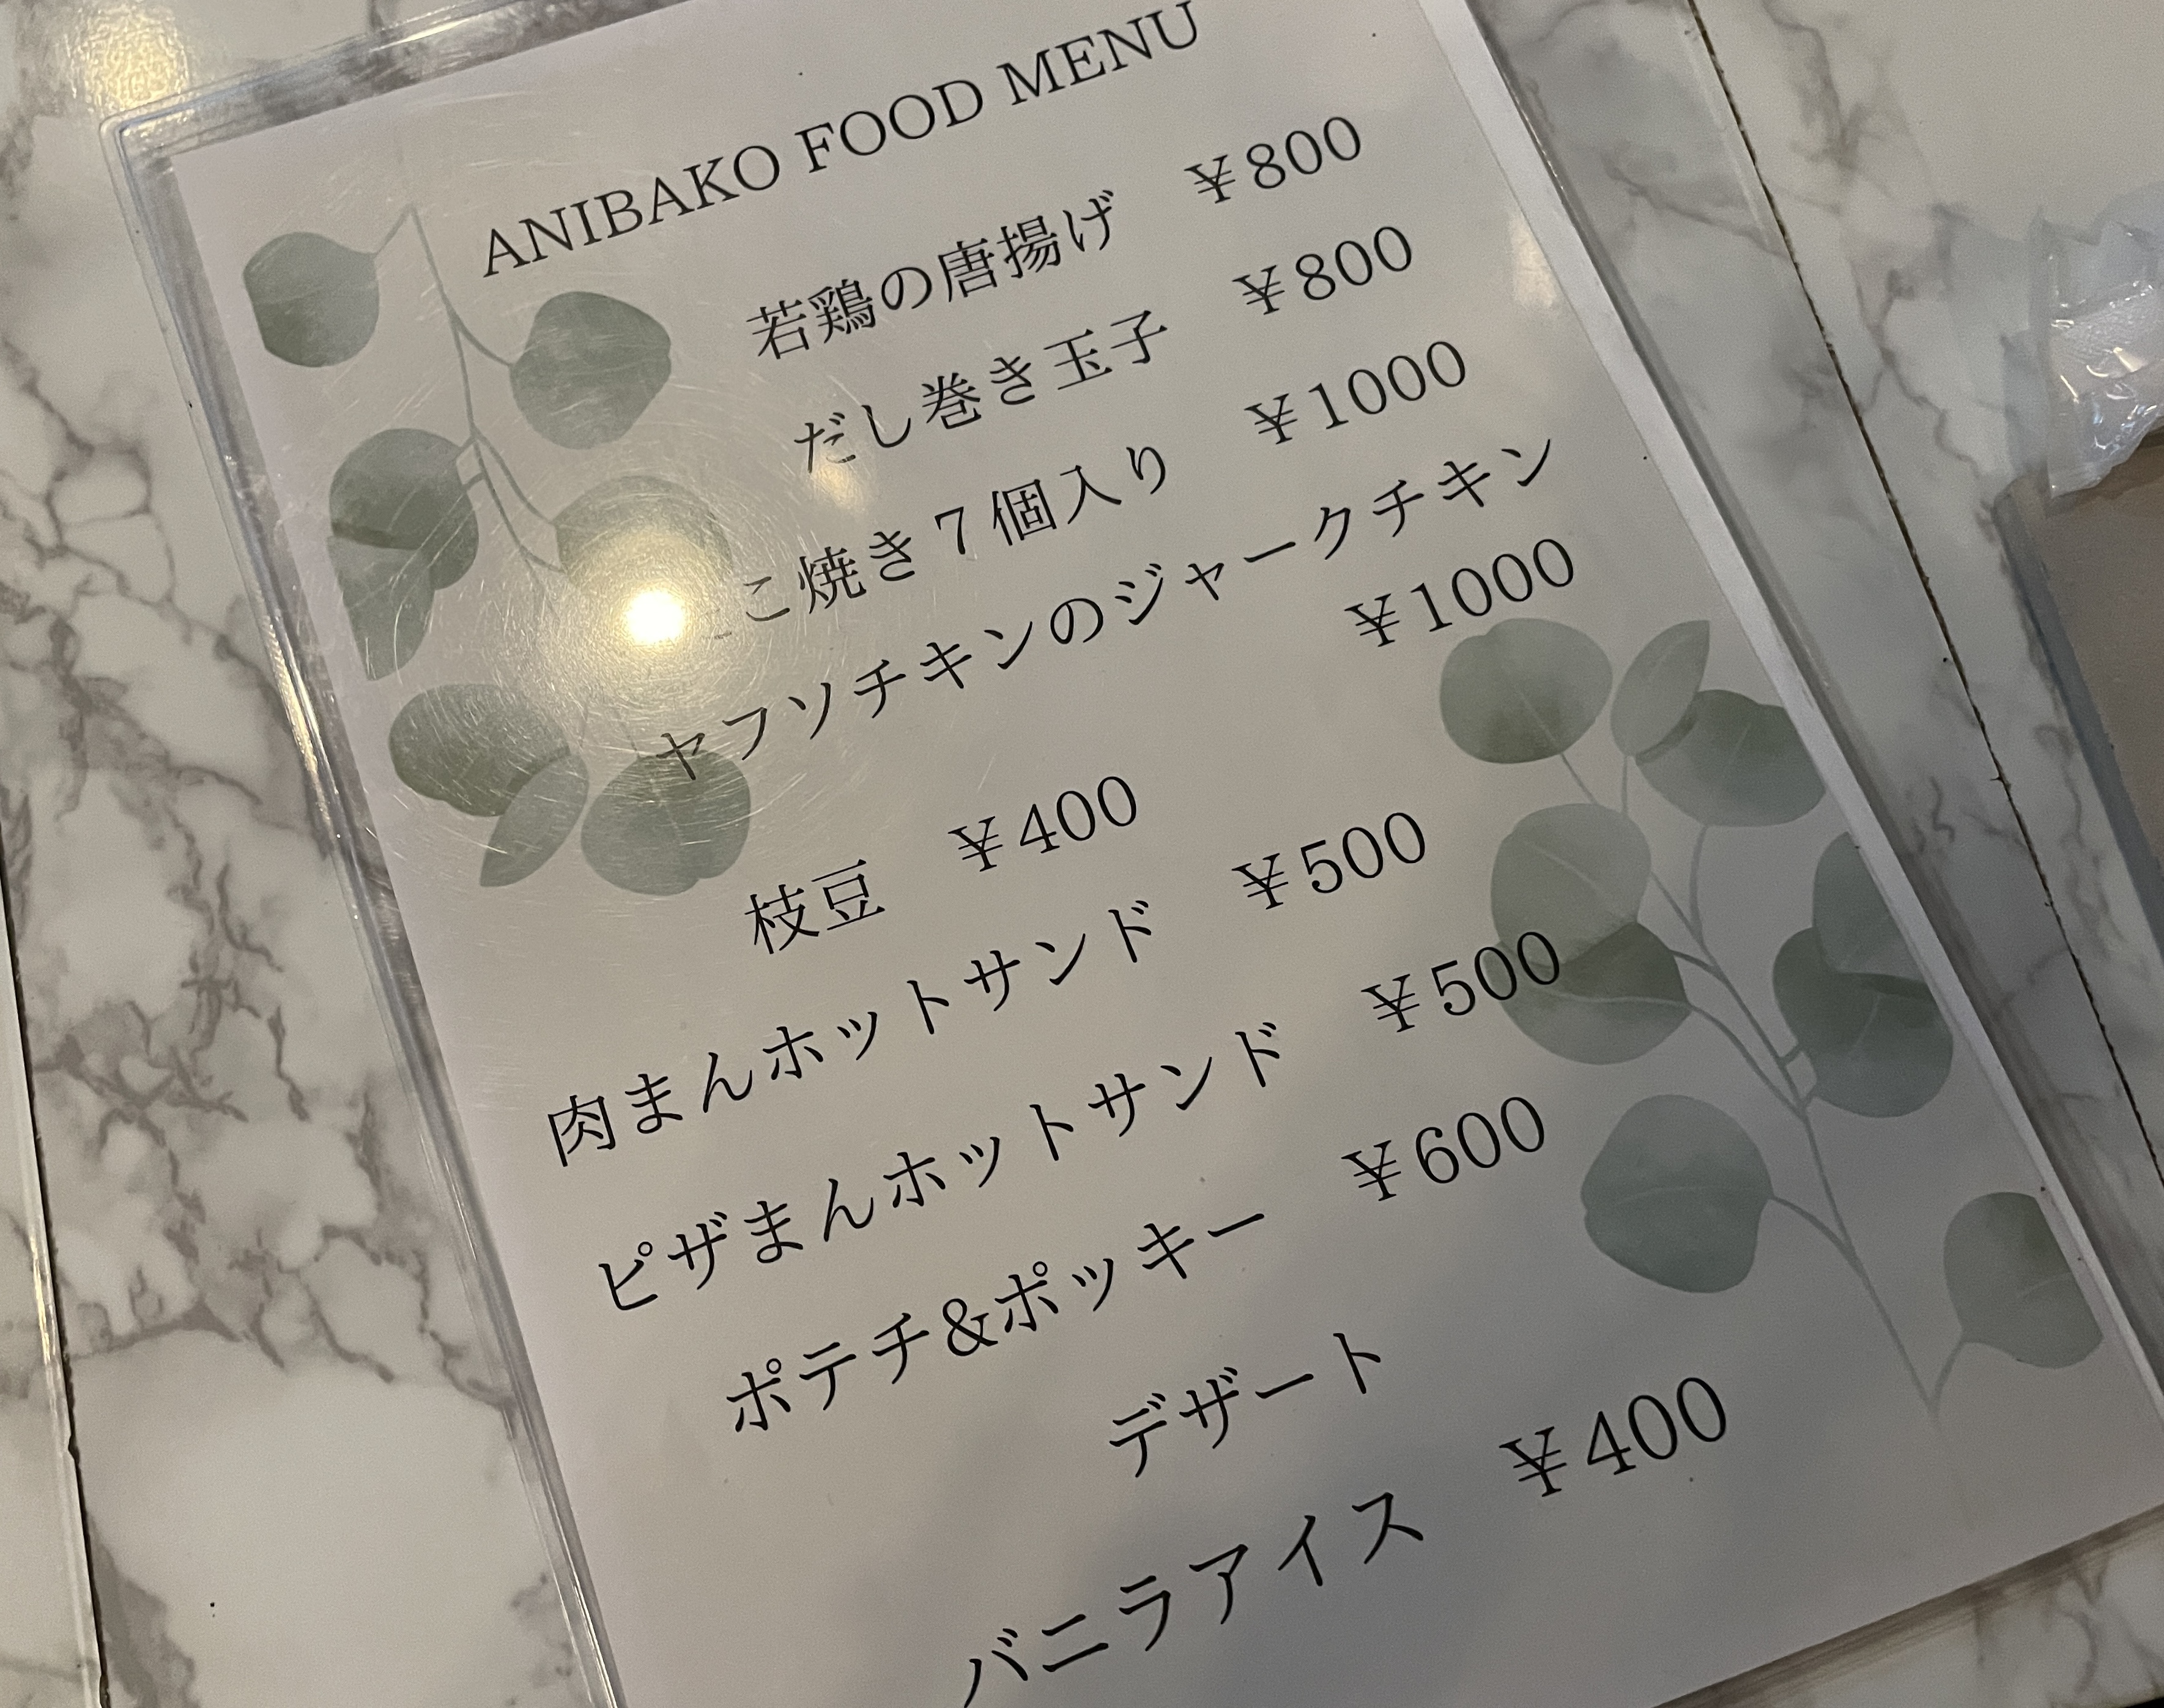 ANIBAKO FOOD MENU
若鶏の唐揚げ ¥800
だし巻き玉子 ¥800
こ焼き７個入り ¥1000
ヤフソチキンのジャークチキン
¥1000
枝豆 ¥400
肉まんホットサンド ¥500
ピザまんホットサンド ¥500
ポテチ&ポッキー ¥600
デザート
バニラアイス ¥400